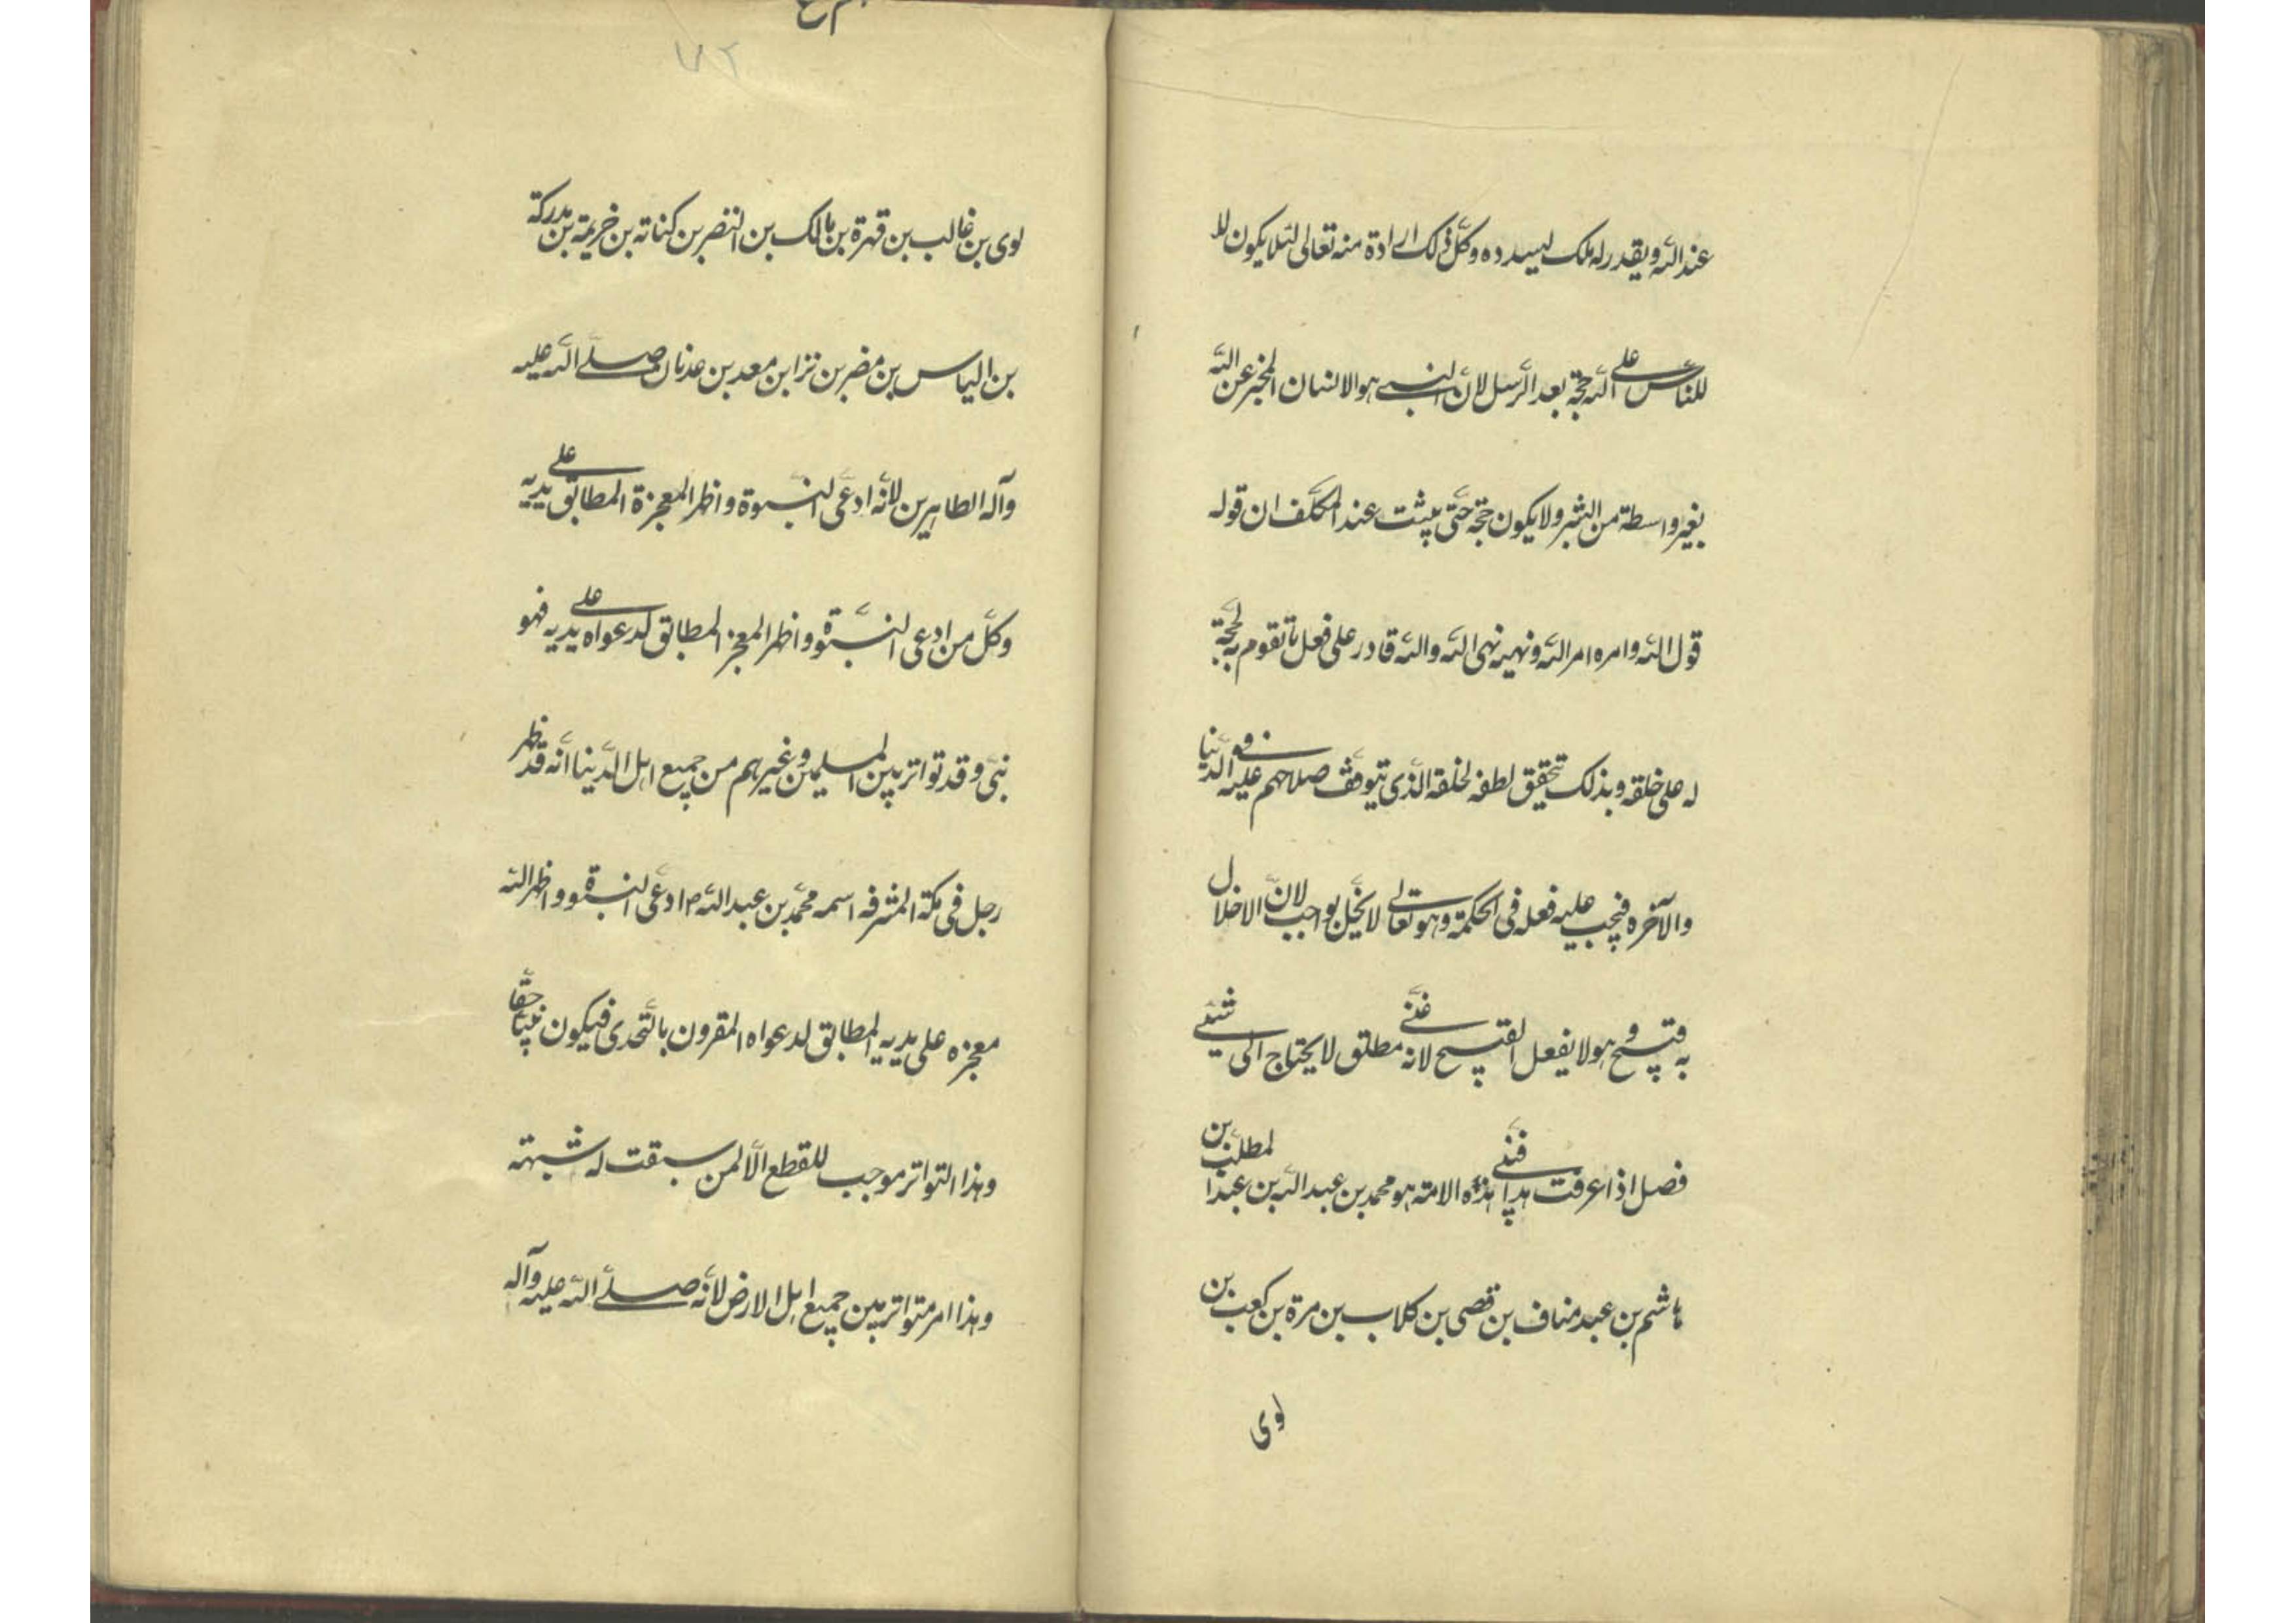 عند الله ويقدر له ملك ليسدده وكلّ ذلك ارادة منه تعالى لئلا يكون لا
للناس على الله حجّة بعد الرّسل لانّ النبى هو الانسان المخبر عن الله
بغير واسطة من البشر ولا يكون حجّة حتّى يثبت عند المكلّف ان قوله
قول الله وامره امر الله ونهيه نهى الله والله قادر على فعل ما تقوم به الحجّة
له على خلقه وبذلك تتحقق لطفه لخلقه الذى يتوقف صلاحهم عليه فى الدّنيا
والآخره فيجب عليه فعله فى الحكمة وهو تعالى لا يخلّ بواجب لانّ الاخلال
به قبيح وهو لا يفعل القبيح لانه غنّى مطلق لا يحتاج الى شيئ
فصل اذا عرفت هذا فنبى هذه الامته هو محمد بن عبد الله بن عبد المطلب بن
هاشم بن عبد مناف بن قصى بن كلاب بن مرة بن كعب بن
لوى
لوى بن غالب بن قهرة بن مالك بن النضر بن كنانه بن خريمة بن مدركة
بن الياس بن مضر بن نزا بن معد بن عدنان صلّى الله عليه
وآله الطاهرين لانّه ادعّى النبّوة واظهر المعجزة المطابق على يديه
وكلّ من ادعى النبّوة واظهر المعجز المطابق لدعواه على يديه فهو
نبىّ وقد تواتر بين المسلمين وغيرهم من جميع اهل الدّنيا انّه قد ظهر
رجل فى مكة المشرفه اسمه محمّد بن عبد الله ص ادعّى النبوّة واظهر الله
معجزه على يديه المطابق لدعواه المقرون بالتّحدى فيكون نبيّا حقّا
وهذا التواتر موجب للقطع الّا لمن سبقت له شبهته
وهذا امر متواتر بين جميع اهل الارض لانّه صلّى الله عليه وآله